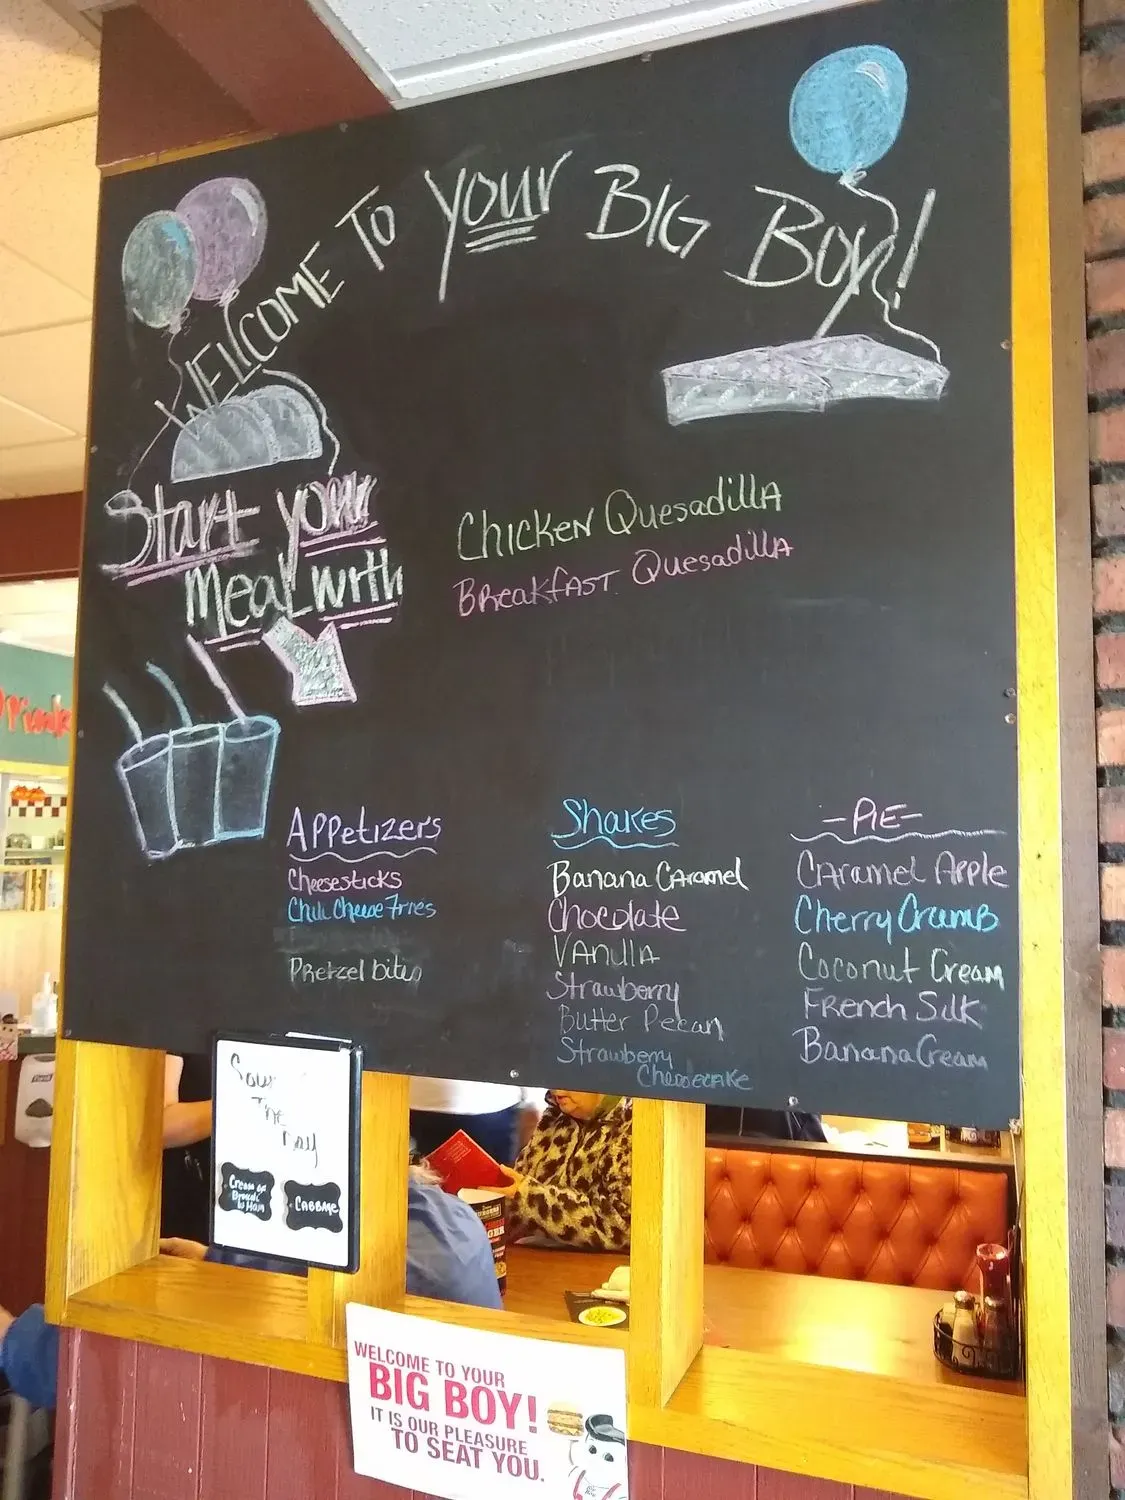 WELCOME TO YOUR BIG BOY!
Start your
Meal with
Chicken Quesadilla
Breakfast Quesadilla
Appetizers
Cheesesticks
Chili Cheese Fries
Pretzel bites
Shakes
Banana Caramel
Chocolate
Vanilla
Strawberry
Butter Pecan
Strawberry
Cheesecake
-PIE-
Caramel Apple
Cherry Crumb
Coconut Cream
French Silk
Banana Cream
Soup
The
Day
Cream of
Brocoli
W Ham
CABBAGE
WELCOME TO YOUR
BIG BOY!
IT IS OUR PLEASURE
TO SEAT YOU.